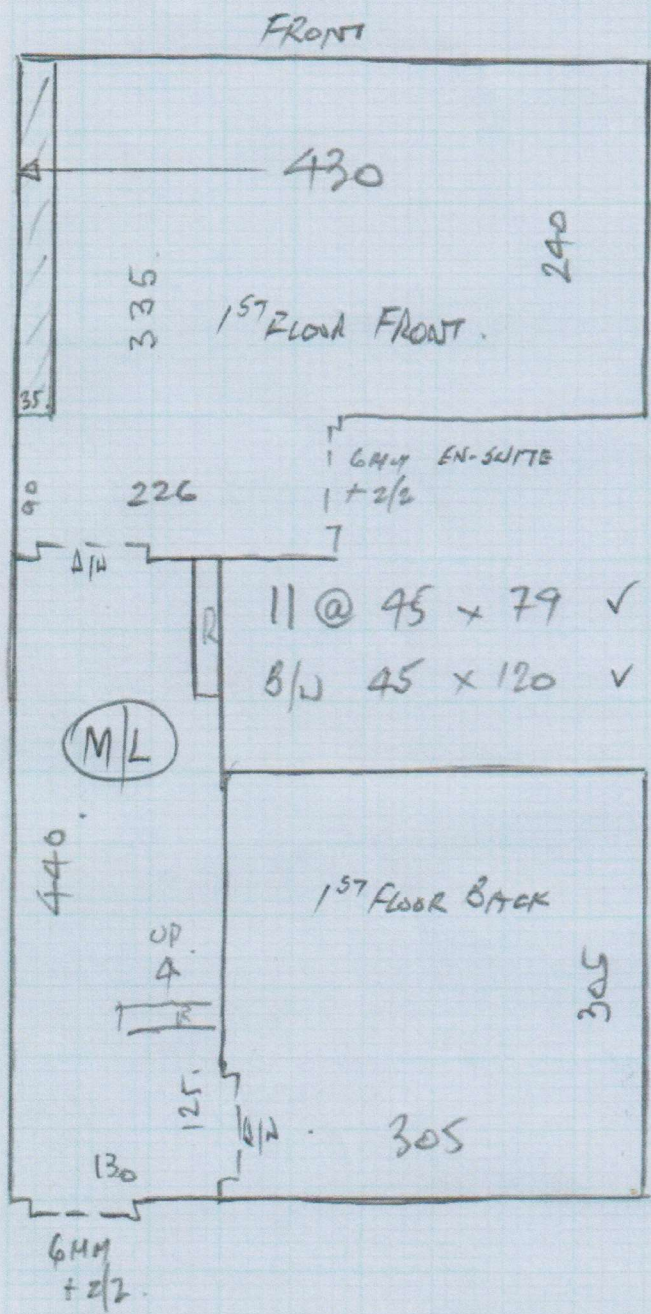 FRONT
430
240
335
1ST FLOOR FRONT.
35
6MM EN-SUITE
+ 2/2
90
226
7
D/W
11 @ 45 x 79 ✓
R
B/W 45 x 120 ✓
M/L
440.
1ST FLOOR BACK
UP
4
R
305
125.
D/W
305
130
6MM
+ 2/2.